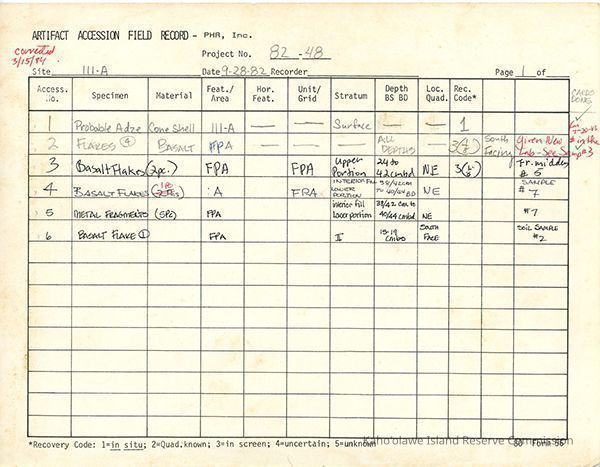 ARTIFACT ACCESSION FIELD RECORD - PHR, Inc.
corrected
3/15/84.
Project No. 82-48
Site III-A Date 9-28-82 Recorder Page 1 of
Access. No. Specimen Material Feat./ Area Hor. Feat. Unit/ Grid Stratum Depth BS BD Loc. Quad. Rec. Code*
CARDS DONE
1 Probable Adze Cone Shell III-A — — Surface — — 1
2 FLAKES (4) BASALT FPA — — — ALL DEPTHS — South Facing given New # in the Lab - See
3 Basalt Flakes (2pc.) FPA FPA upper Portion 24 to 42cmbd NE Fr. midden # 5
4 BASALT FLAKES A FRA INTERIOR FILL LOWER PORTION NE SAMPLE # 7
5 METAL FRAGMENTS (5PC) FPA interior fill lower portion 38/42 cm to 40/44 cmbd NE #7
6 BASALT FLAKE (1) FPA II 15-19 cmbd SOUTH FACE SOIL SAMPLE #2
*Recovery Code: 1=in situ; 2=Quad.known; 3=in screen; 4=uncertain; 5=unknown
Kaho'olawe Island Reserve Commission